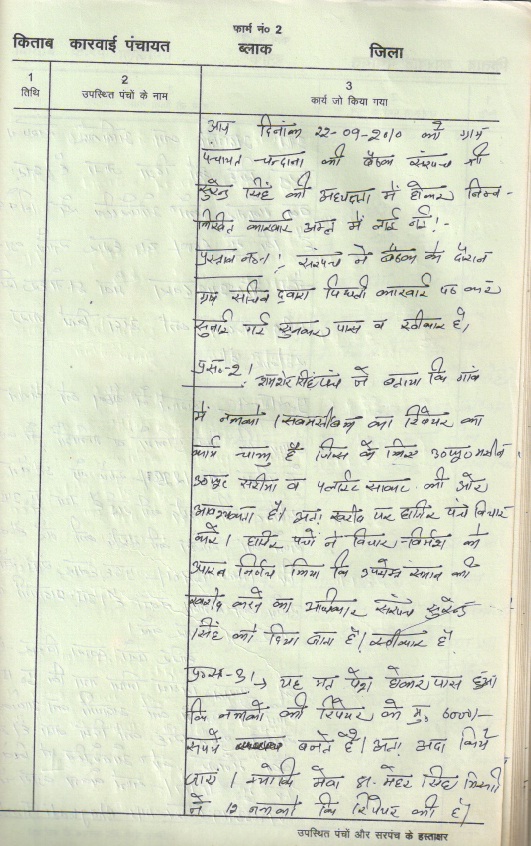 फार्म नं० 2
किताब कारवाई पंचायत ब्लाक जिला
1 2 3
तिथि उपस्थित पंचों के नाम कार्य जो किया गया
आज दिनांक 22-09-2010 को ग्राम
पंचायत चन्दाना की बैठक सरपंच श्री
सुरेन्द्र सिंह की अध्यक्षता में होकर निम्न-
लिखित कारवाई अमल में लाई गई।-
प्रस्ताव नं०१। सरपंच ने बैठक के दौरान
ग्राम सचिव द्वारा पिछली कारवाई पढ़ कर
सुनाई गई सुनकर पास व स्वीकार है।
प्र०सं०-2। शमशेर सिंह पंच ने बताया कि गांव
में नलकों का रिपेयर का
कार्य चालु है जिस के लिए
सरीया व की और
आवश्यकता है। अतः खरीद पर हाजिर पंच विचार
करें। हाजिर पंचों ने विचार-विर्मश के
निर्णय लिया कि उपरोक्त समान की
खरीद करने का अधिकार सरपंच सुरेन्द्र
सिंह को दिया जाता है। स्वीकार है
प्र०सं०-3। → यह मत पेश होकर पास हुआ
कि नलकों की रिपेयर के मु० 6000/-
रूपये बनते है। अतः अदा किये
जाएं। क्योंकि मेवा मेहर सिंह मिस्त्री
ने 12 नलकों कि रिपेयर की है।
उपस्थित पंचों और सरपंच के हस्ताक्षर